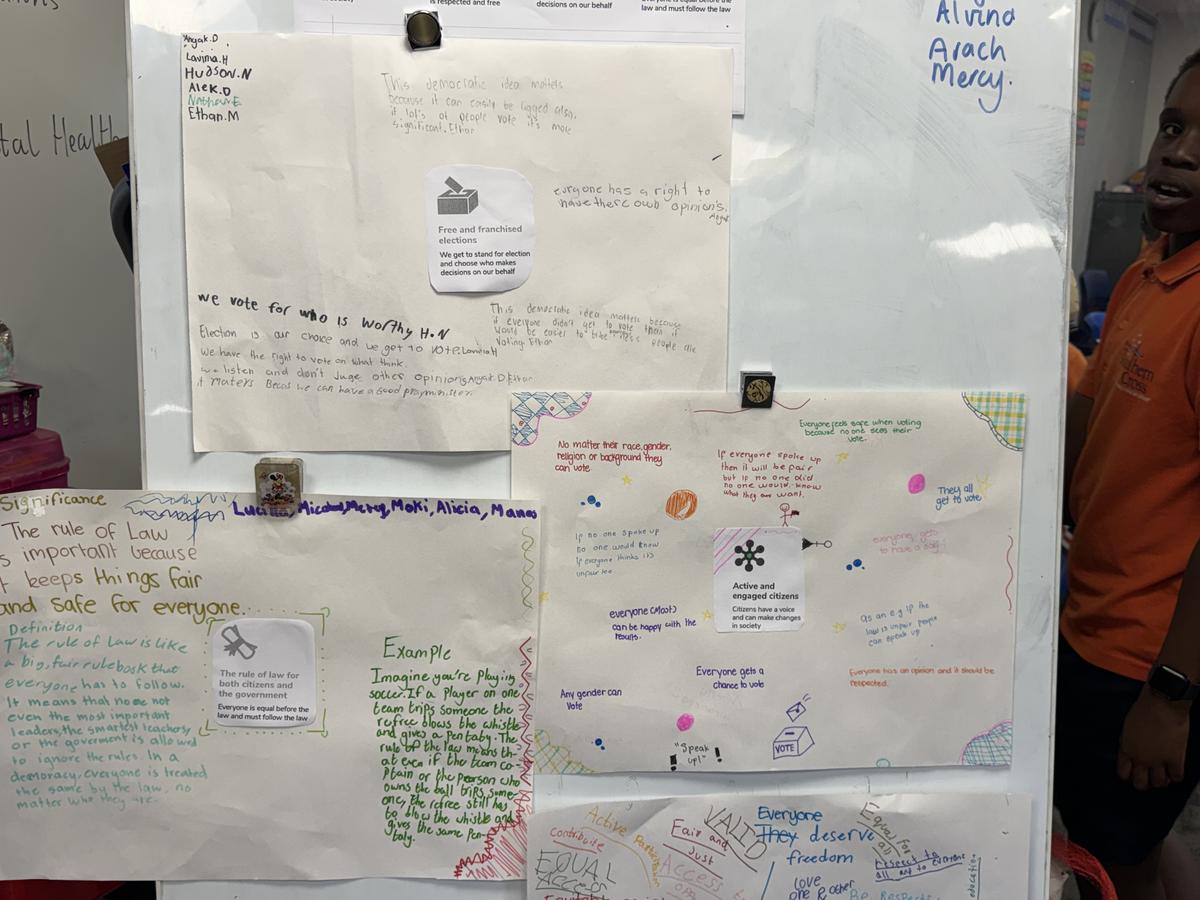 is respected and free
decisions on our behalf
law and must follow the law
Alvina
Arach
Mercy.
tal Health
Angak.D
Lavina.H
Hudson.N
Alek.D
Nathan.E
Ethan.M
This democratic idea matters
because it can easily be rigged also,
if lot's of people vote it's more
significant. Ethan
Free and franchised
elections
We get to stand for election
and choose who makes
decisions on our behalf
euryone has a right to
have there own opinion's.
we vote for who is worthy H.N
Election is our choice and we get to vote. Lavina H
We have the right to vote on what think.
we listen and don't Juge other opinions Angak.D Ethan
it maters Becas we can have a good prayminister.
This democratic idea matters because
if everyone didn't get to vote than it
would be easier to people
Voting. Ethan
Everyone feels safe when voting
because no one sees their
vote.
No matter their race, gender,
religion or background they
can vote
If everyone spoke up
then it will be fair
but if no one did
no one would know
what they want.
They all
get to vote
If no one spoke up
no one would know
If everyone thinks it's
unfair
Active and
engaged citizens
Citizens have a voice
and can make changes
in society
everyone gets
to have a say
everyone (Most)
can be happy with the
results.
as an e.g if the
law is unfair people
can speak up
Everyone gets a
chance to vote
Everyone has an opinion and it should be
respected.
Any gender can
Vote
"Speak
up!"
VOTE
Significance
Micabel, Mercy, Moki, Alicia, Manas
The rule of Law
s important because
t keeps things fair
and safe for everyone.
Definition
The rule of law is like
a big, fair rulebook that
everyone has to follow.
It means that no one not
even the most important
leaders, the smartest teachers,
or the goverment is allowed
to ignore the rules. In a
democracy, everyone is treated
the same by the law, no
matter who they are.
The rule of law for
both citizens and
the government
Everyone is equal before the
law and must follow the law
Example
Imagine you're playing
soccer. If a player on one
team trips someone the
refree blows the whistle
and gives a pentaby. The
rule of the law means th-
at even if the team ca-
ptain or the pearson who
owns the ball trips some-
one, the refree still has
to blow the whistle and
gives the same pen-
taly.
Active Participation
Contribute
EQUAL
Access
Fair and
Just
VALID
Access
Everyone
They deserve
freedom
love
one & other
Equal for
all
respect to
all and to everyone
Be Respect
education